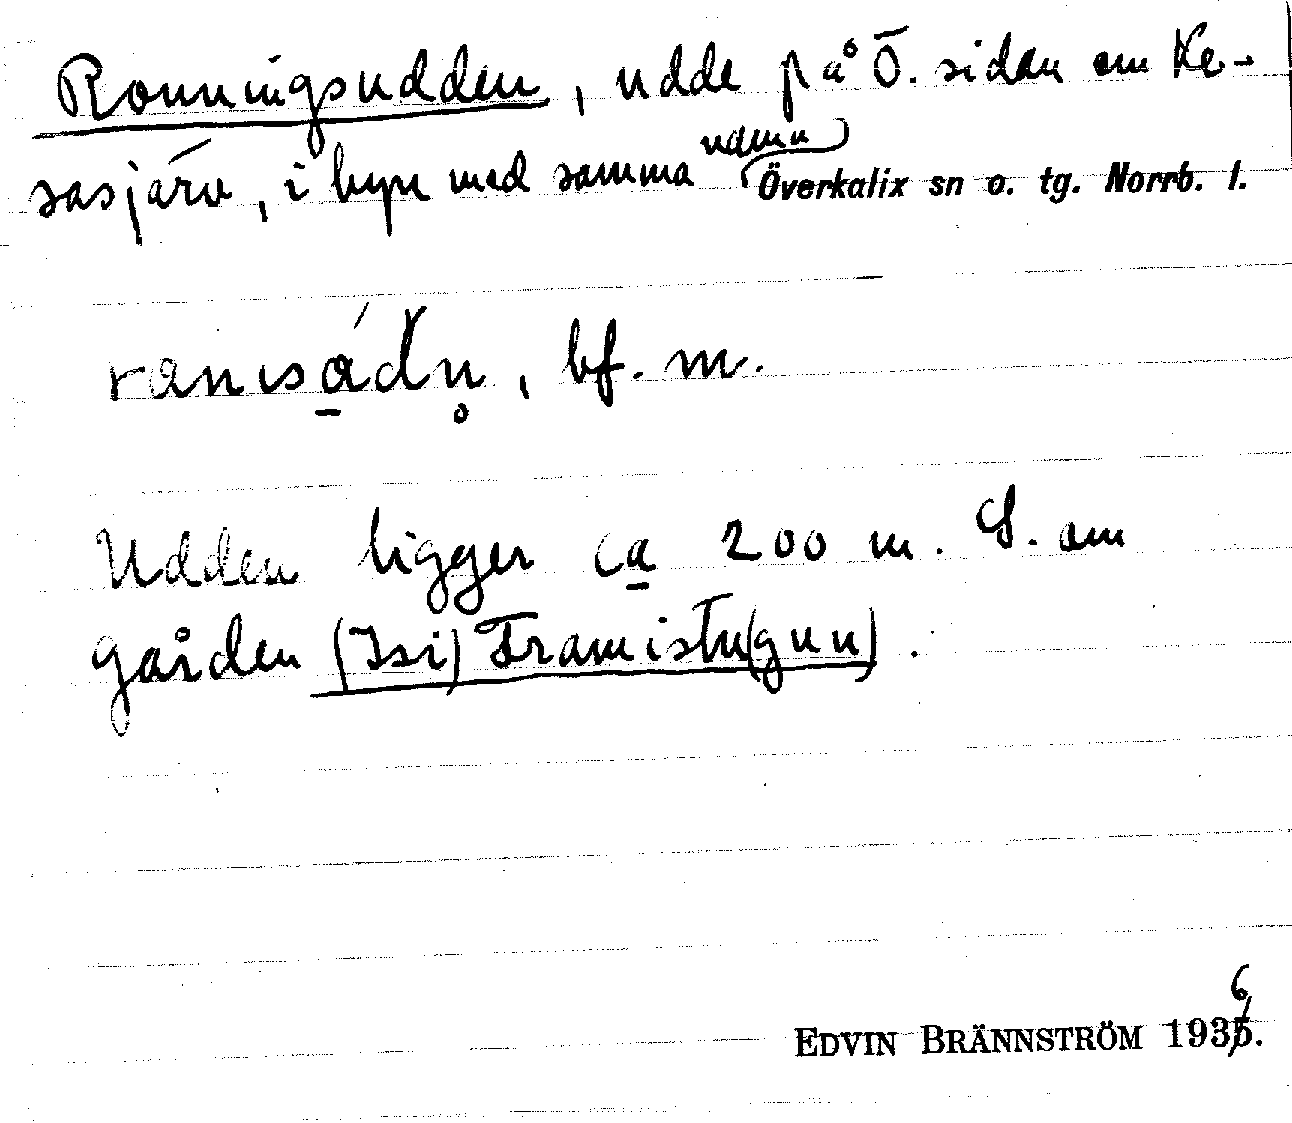 Ronningsudden, udde på Ö. sidan om Ke-
sasjärv, i byn med samma namn Överkalix sn o. tg. Norrb. l.
bf. m.
Udden ligger ca 200 m. S. om
gården (Isi) Framistu(gun).
EDVIN BRÄNNSTRÖM 1936.